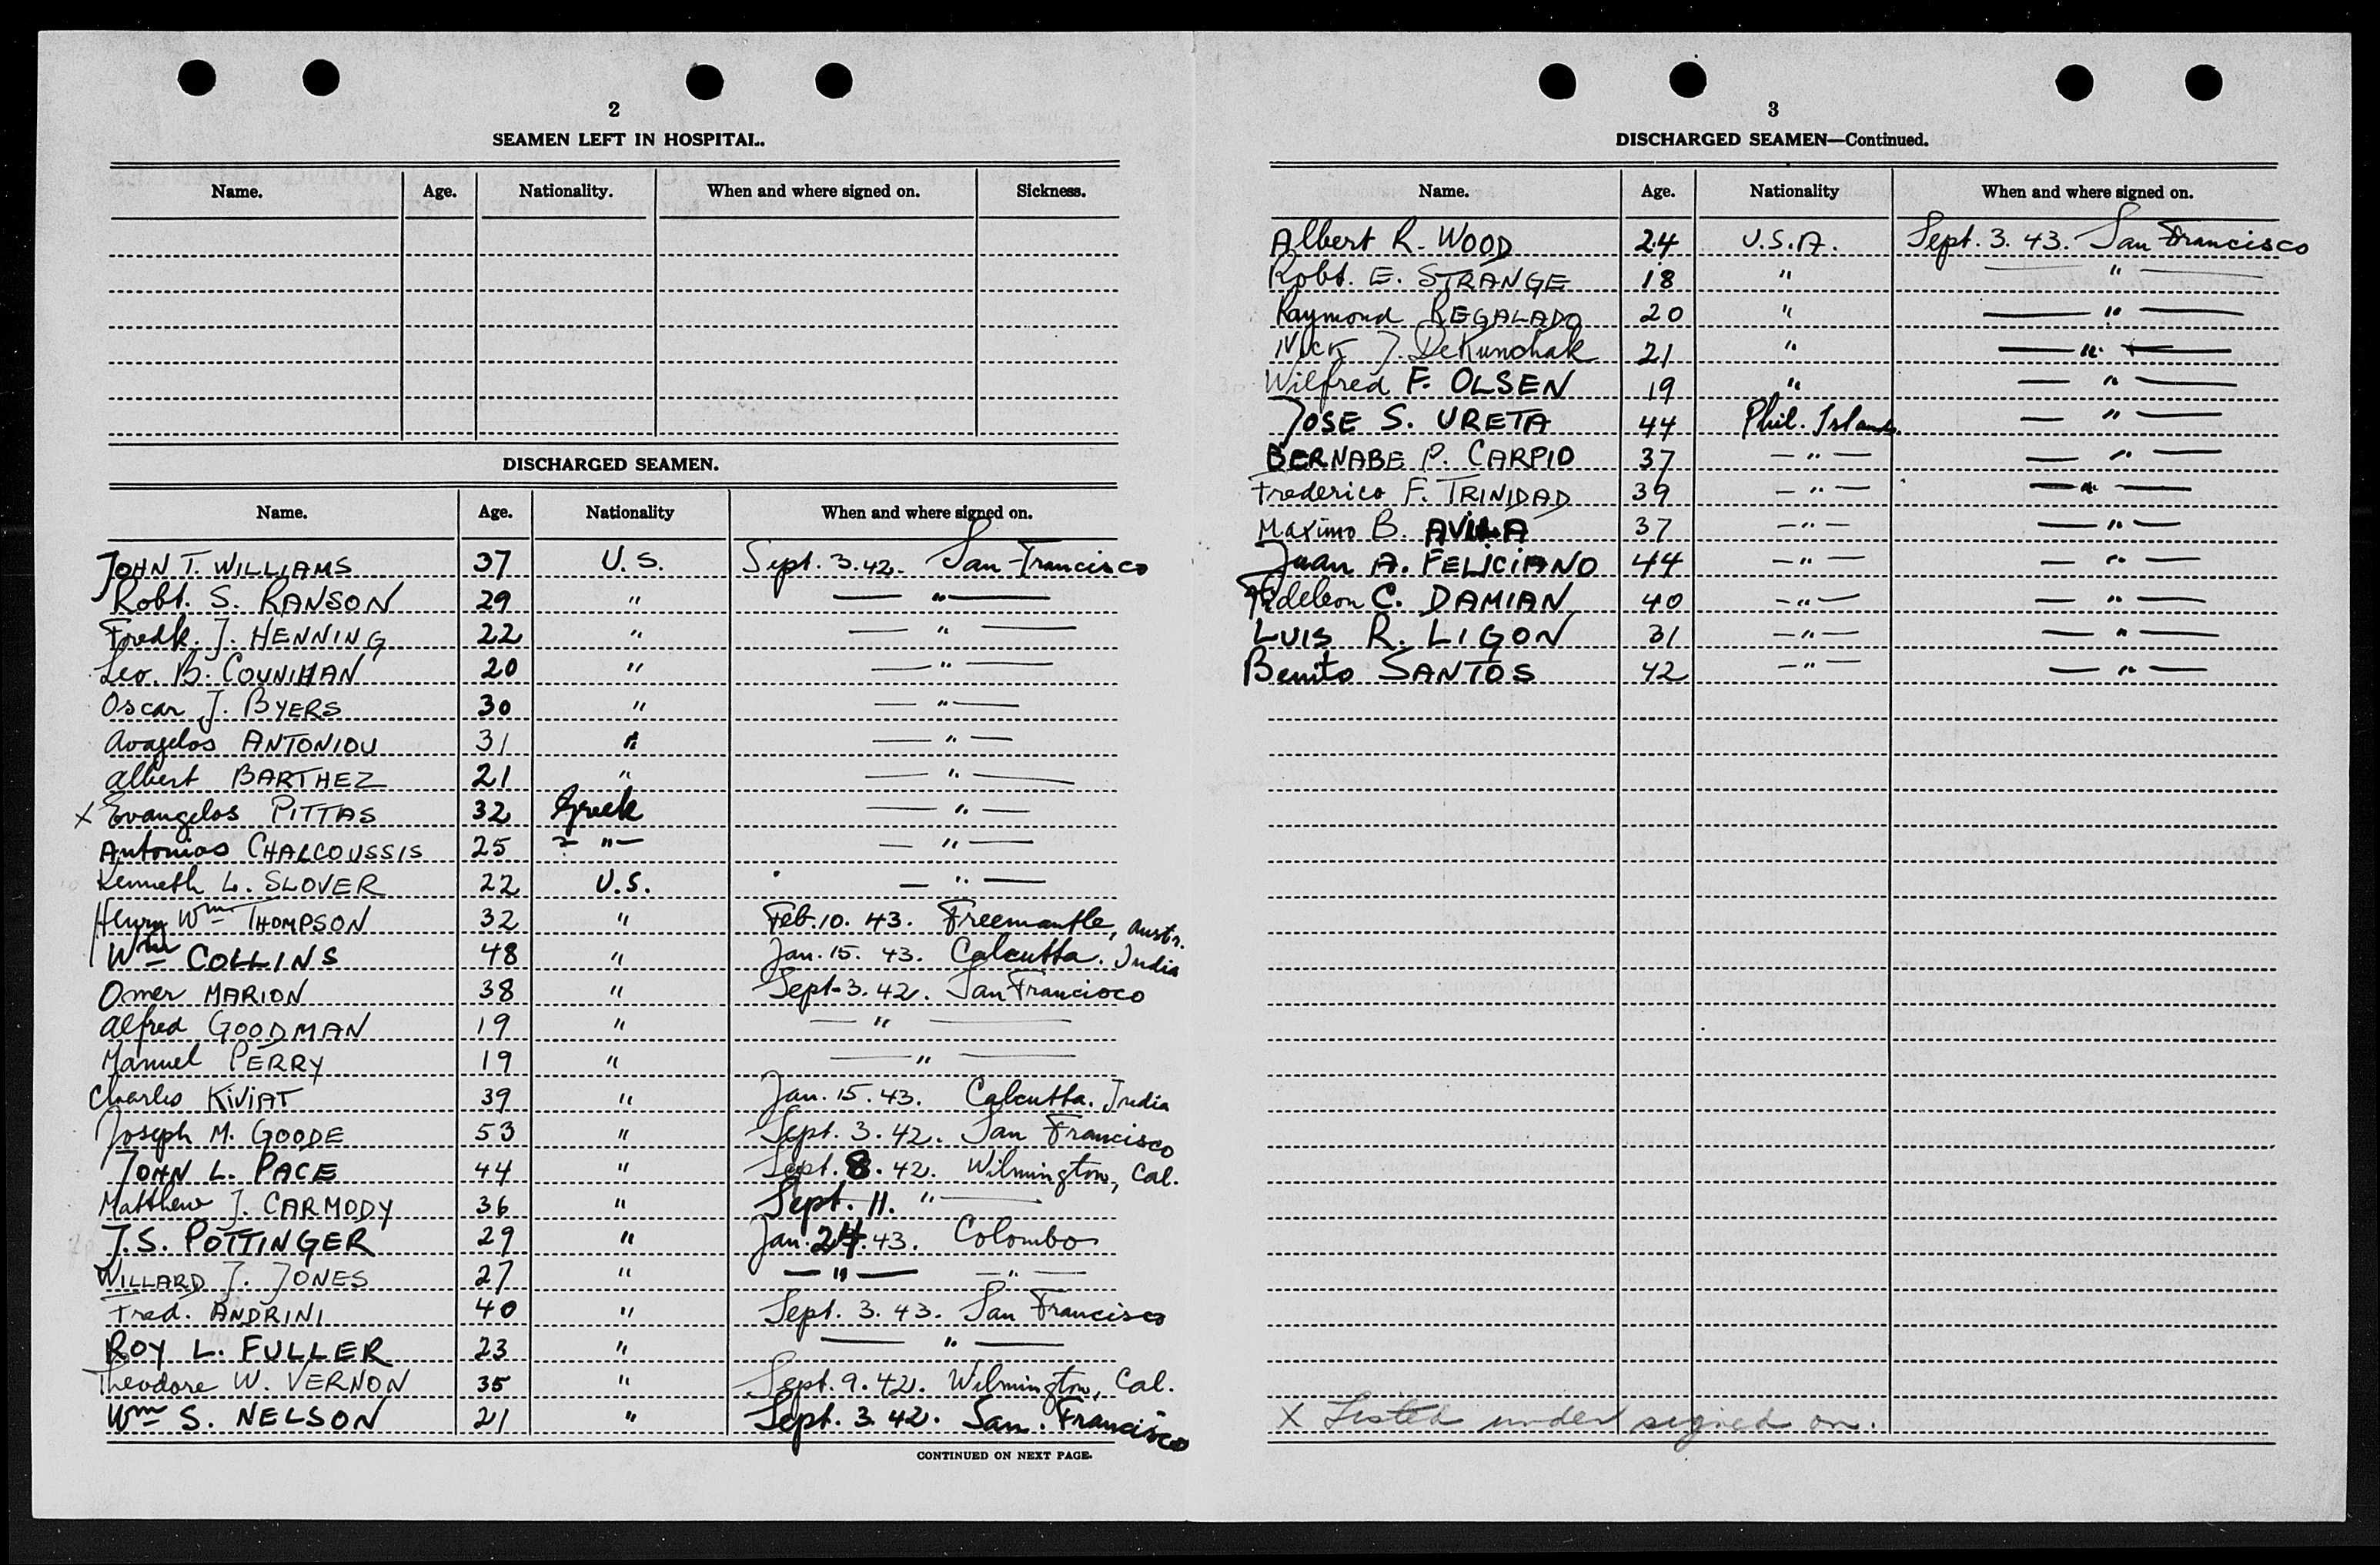 2
SEAMEN LEFT IN HOSPITAL.
Name. Age. Nationality. When and where signed on. Sickness.
DISCHARGED SEAMEN.
Name. Age. Nationality When and where signed on.
JOHN T. WILLIAMS 37 U.S. Sept. 3. 42. San Francisco
Robt. S. RANSON 29 " — " —
Fredk. J. HENNING 22 " — " —
Leo. B. COUNIHAN 20 " — " —
Oscar J. BYERS 30 " — " —
Avagelos ANTONIOU 31 " — " —
Albert BARTHEZ 21 " — " —
X Evangelos PITTAS 32 Greek — " —
Antonios CHALCOUSSIS 25 - " - — " —
Kenneth L. SLOVER 22 U.S. — " —
Henry Wm THOMPSON 32 " Feb. 10. 43. Freemantle, Austr.
Wm COLLINS 48 " Jan. 15. 43. Calcutta. India
Omer MARION 38 " Sept-3. 42. San Francisco
Alfred GOODMAN 19 " — " —
Manuel PERRY 19 " — " —
Charles KIVIAT 39 " Jan. 15. 43. Calcutta. India
Joseph M. GOODE 53 " Sept. 3. 42. San Francisco
JOHN L. PACE 44 " Sept. 8. 42. Wilmington, Cal.
Matthew J. CARMODY 36 " Sept. 11. " —
J.S. POTTINGER 29 " Jan. 24. 43. Colombo
WILLARD J. JONES 27 " — " — — " —
Fred. ANDRINI 40 " Sept. 3. 43. San Francisco
ROY L. FULLER 23 " — " —
Theodore W. VERNON 35 " Sept. 9. 42. Wilmington, Cal.
Wm S. NELSON 21 " Sept. 3. 42. San. Francisco
CONTINUED ON NEXT PAGE.
3
DISCHARGED SEAMEN—Continued.
Name. Age. Nationality When and where signed on.
Albert R. WOOD 24 U.S.A. Sept. 3. 43. San Francisco
Robt. E. STRANGE 18 " — " —
Raymond REGALADO 20 " — " —
Nick J. DeKunchak 21 " — " —
Wilfred F. OLSEN 19 " — " —
JOSE S. URETA 44 Phil. Islands. — " —
BERNABE P. CARPIO 37 — " — — " —
Frederico F. TRINIDAD 39 — " — — " —
Maximo B. AVILA 37 — " — — " —
Juan A. FELICIANO 44 — " — — " —
Fideleon C. DAMIAN 40 — " — — " —
LUIS R. LIGON 31 — " — — " —
Benito SANTOS 42 — " — — " —
X Listed under signed on.